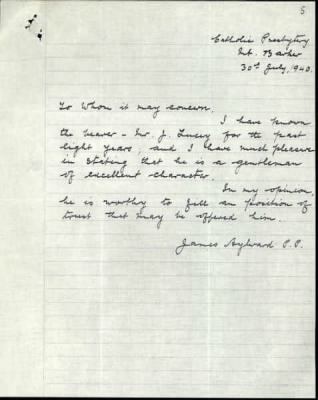 5
Catholic Presbytery
Mt. Barker
30th July, 1940.
To Whom it may concern.
I have known
the bearer - Mr. J. Lucey for the past
eight years, and I have much pleasure
in stating that he is a gentleman
of excellent character.
In my opinion,
he is worthy to fill an position of
trust that may be offered him.
James Aylward P.P.